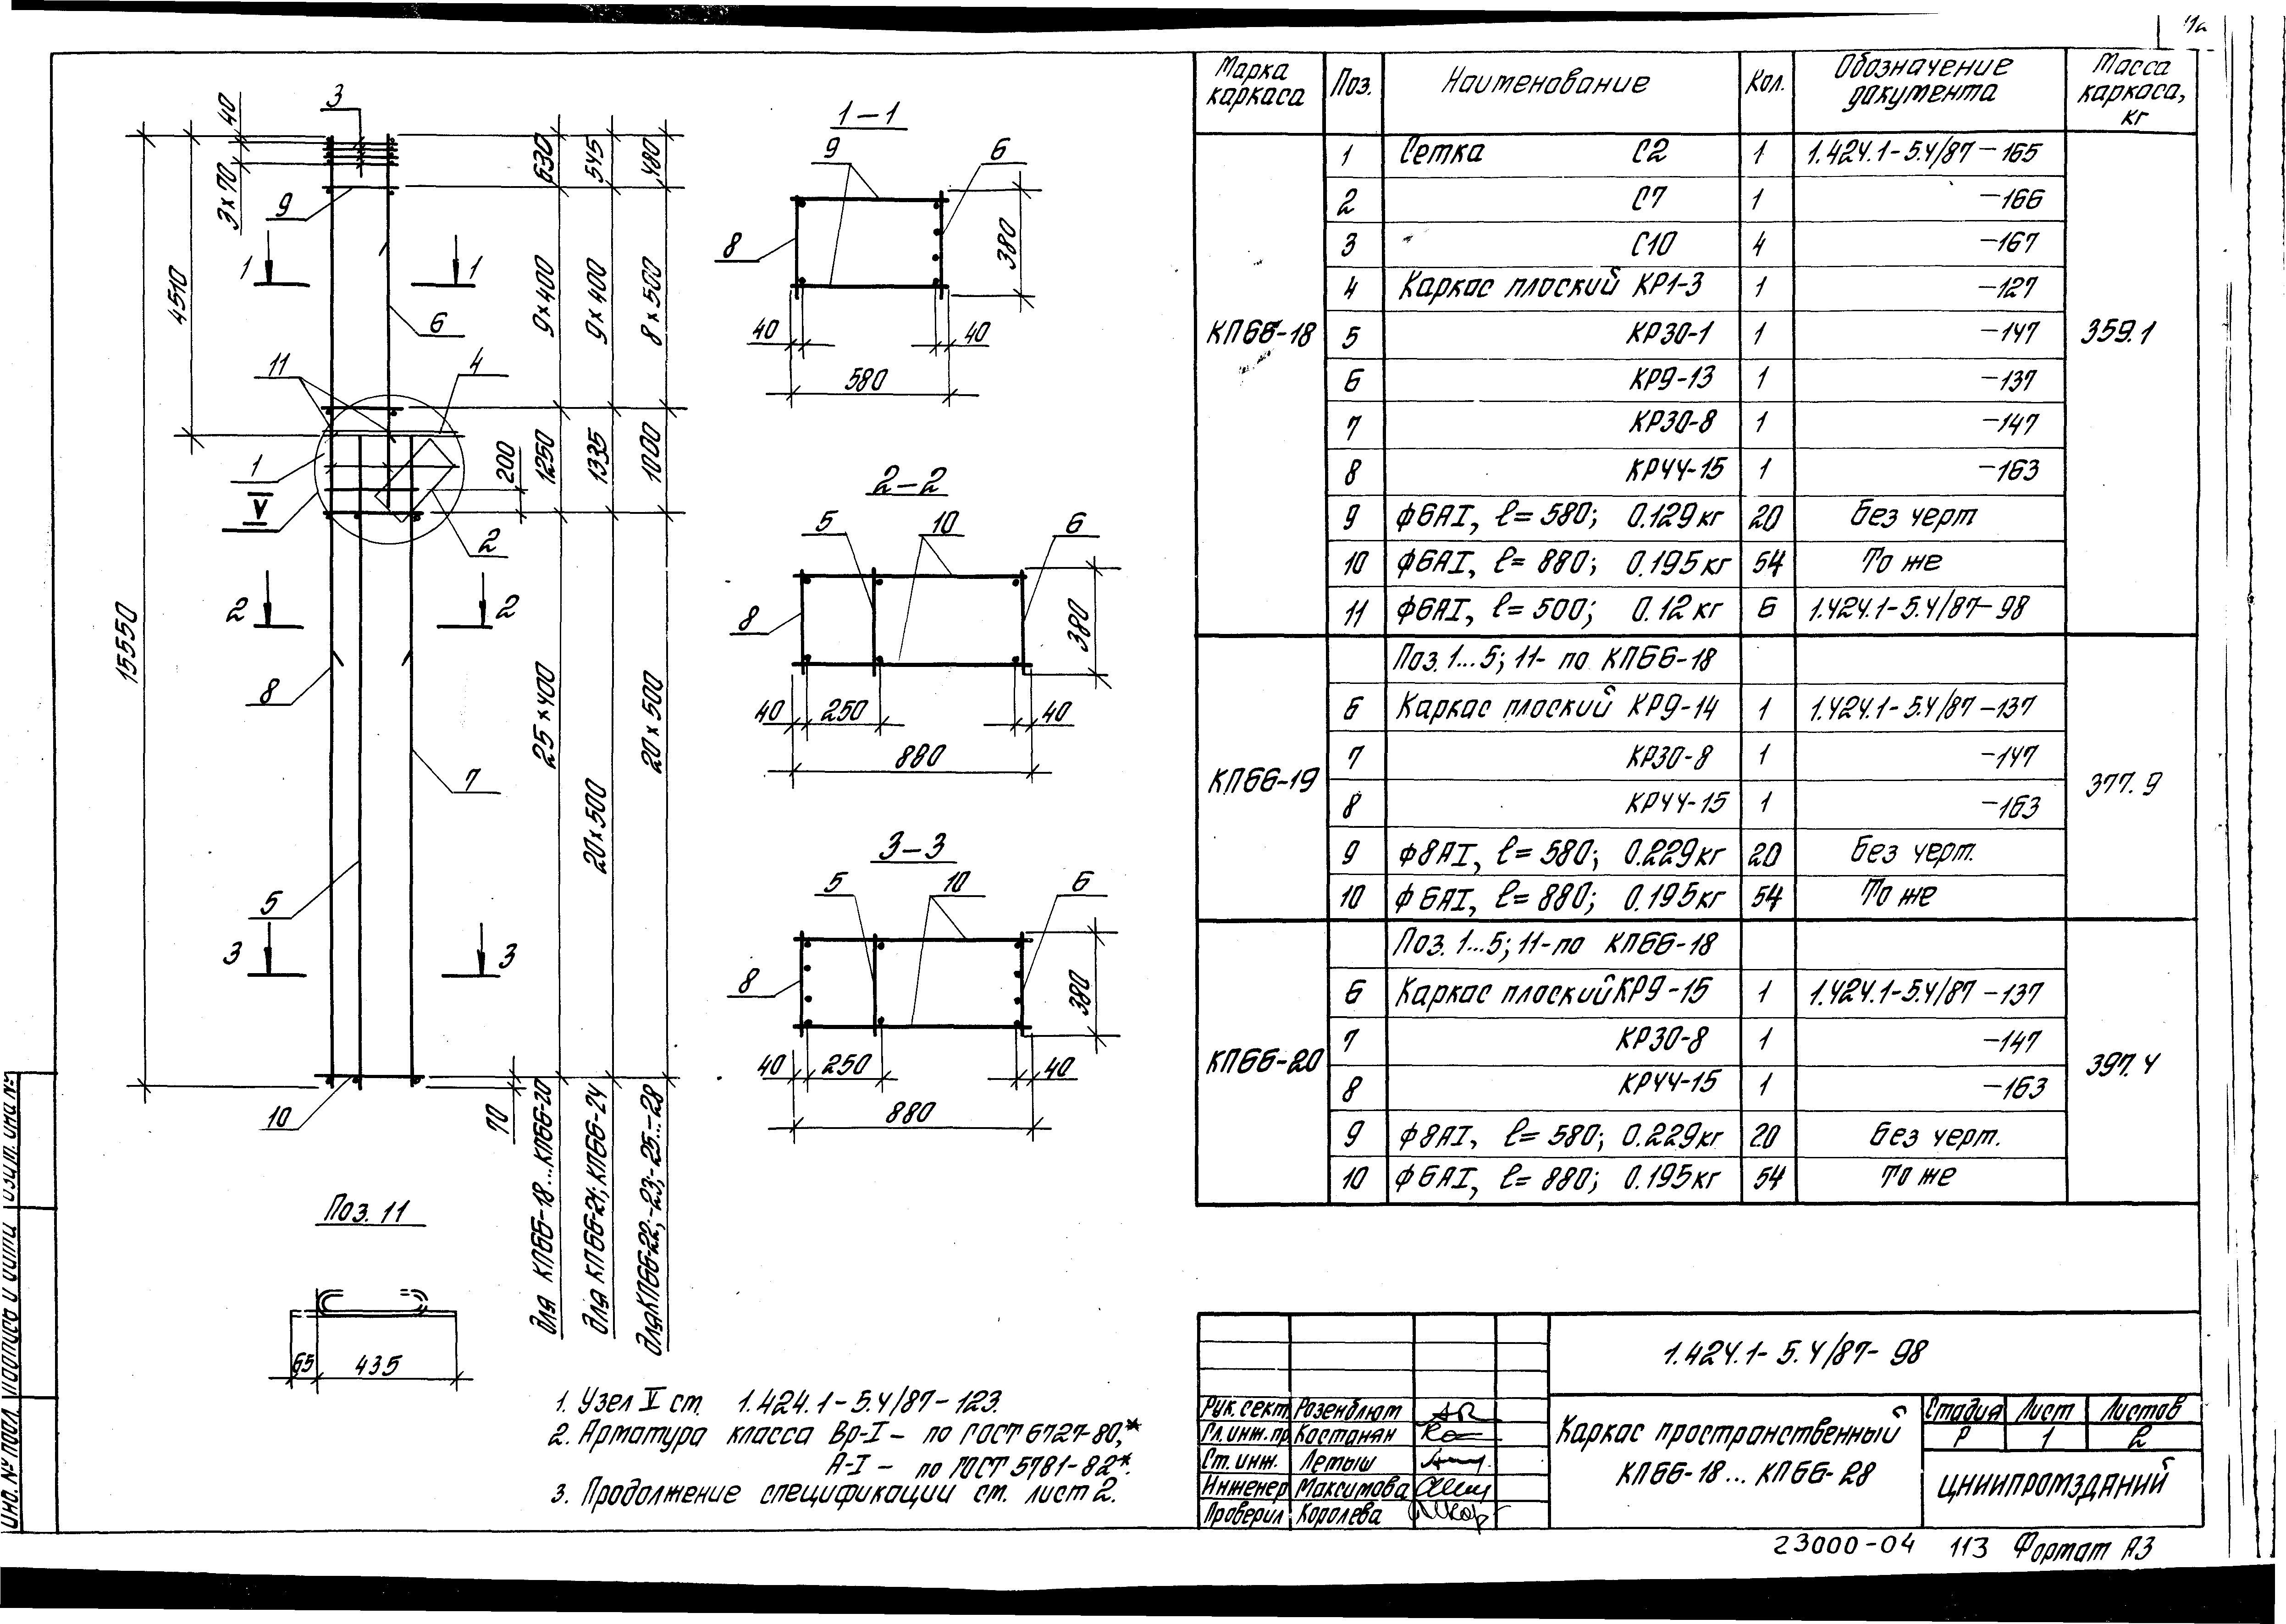 Марка каркаса Поз. Наименование Кол. Обозначение документа Масса каркаса, кг
КП66-18 359.1
1 Сетка С2 1 1.424.1-5.4/87-165
2 С7 1 -166
3 С10 4 -167
4 Каркас плоский КР1-3 1 -127
5 КР30-1 1 -147
6 КР9-13 1 -137
7 КР30-8 1 -147
8 КР44-15 1 -163
9 ф6АI, ℓ=580; 0.129кг 20 Без черт
10 ф6АI, ℓ=880; 0.195кг 54 То же
11 ф6АI, ℓ=500; 0.12кг 6 1.424.1-5.4/87-98
КП66-19 377.9
Поз.1...5; 11- по КП66-18
6 Каркас плоский КР9-14 1 1.424.1-5.4/87-137
7 КР30-8 1 -147
8 КР44-15 1 -163
9 ф8АI, ℓ=580; 0.229кг 20 Без черт.
10 ф6АI, ℓ=880; 0.195кг 54 То же
КП66-20 397.4
Поз.1...5; 11-по КП66-18
6 Каркас плоский КР9-15 1 1.424.1-5.4/87-137
7 КР30-8 1 -147
8 КР44-15 1 -163
9 ф8АI, ℓ=580; 0.229кг 20 Без черт.
10 ф6АI, ℓ=880; 0.195кг 54 То же
40
3
3×70
9
1 1
4510
6
11
4
1
V
200
2
2 2
15550
8
7
5
3 3
10
70
630
9×400
1250
25×400
для КП66-18...КП66-20
545
9×400
1335
20×500
для КП66-21; КП66-24
480
8×500
1000
20×500
для КП66-22;-23;-25...-28
1-1
9 6
8
380
40 40
580
2-2
5 10 6
8
380
40 250 40
880
3-3
5 10 6
8
380
40 250 40
880
Поз.11
65 435
1. Узел V см. 1.424.1-5.4/87-123.
2. Арматура класса Вр-I - по ГОСТ 6727-80,*
А-I - по ГОСТ 5781-82*.
3. Продолжение спецификации см. лист 2.
1.424.1-5.4/87-98
Рук.сект. Розенблюм
Гл.инж.пр Костанян
Ст.инж. Летыш
Инженер Максимова
Проверил Королева
Каркас пространственный
КП66-18...КП66-28
Стадия Лист Листов
Р 1 2
ЦНИИПРОМЗДАНИЙ
23000-04 113 Формат А3
Инв.№ подл. Подпись и дата Взам.инв.№